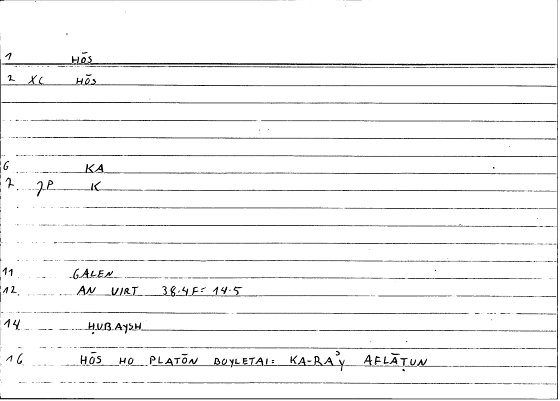 1 HŌS
2 XC HŌS
6 KA
7 JP K
11 GALEN
12 AN VIRT 38.4F= 14.5
14 ḤUBAYSH
16 HŌS HO PLATŌN BOYLETAI: KA-RAʾY AFLĀṬUN